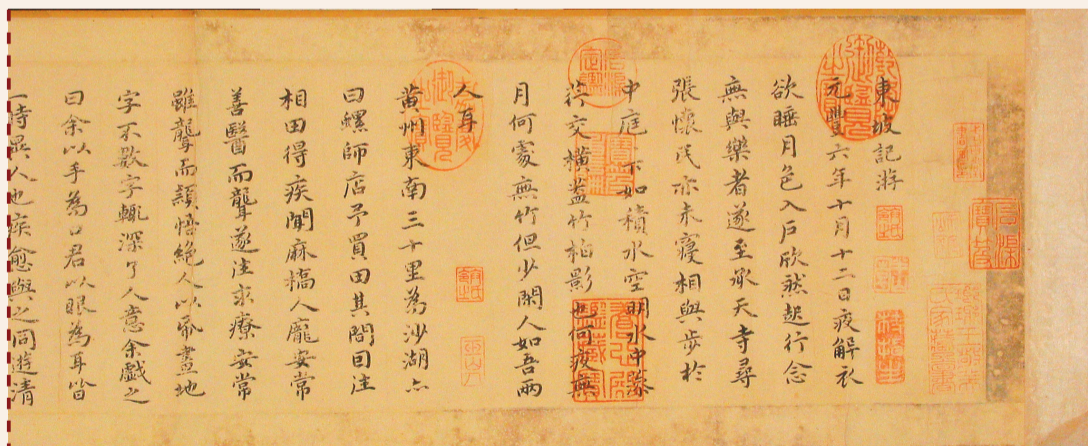 東坡記游
元豐六年十月十二日夜解衣
欲睡月色入戶欣然起行念
無與樂者遂至承天寺尋
張懷民亦未寢相與步於
中庭下如積水空明水中藻
荇交橫蓋竹柏影也何夜無
月何處無竹但少閑人如吾兩
人耳
黃州東南三十里為沙湖亦
曰螺師店予買田其間因往
相田得疾聞麻橋人龐安常
善醫而聾遂往求療安常
雖聾而穎悟絕人以帋畫地
字不數字輒深了人意余戲之
曰余以手為口君以眼為耳皆
一時異人也疾愈與之同遊清